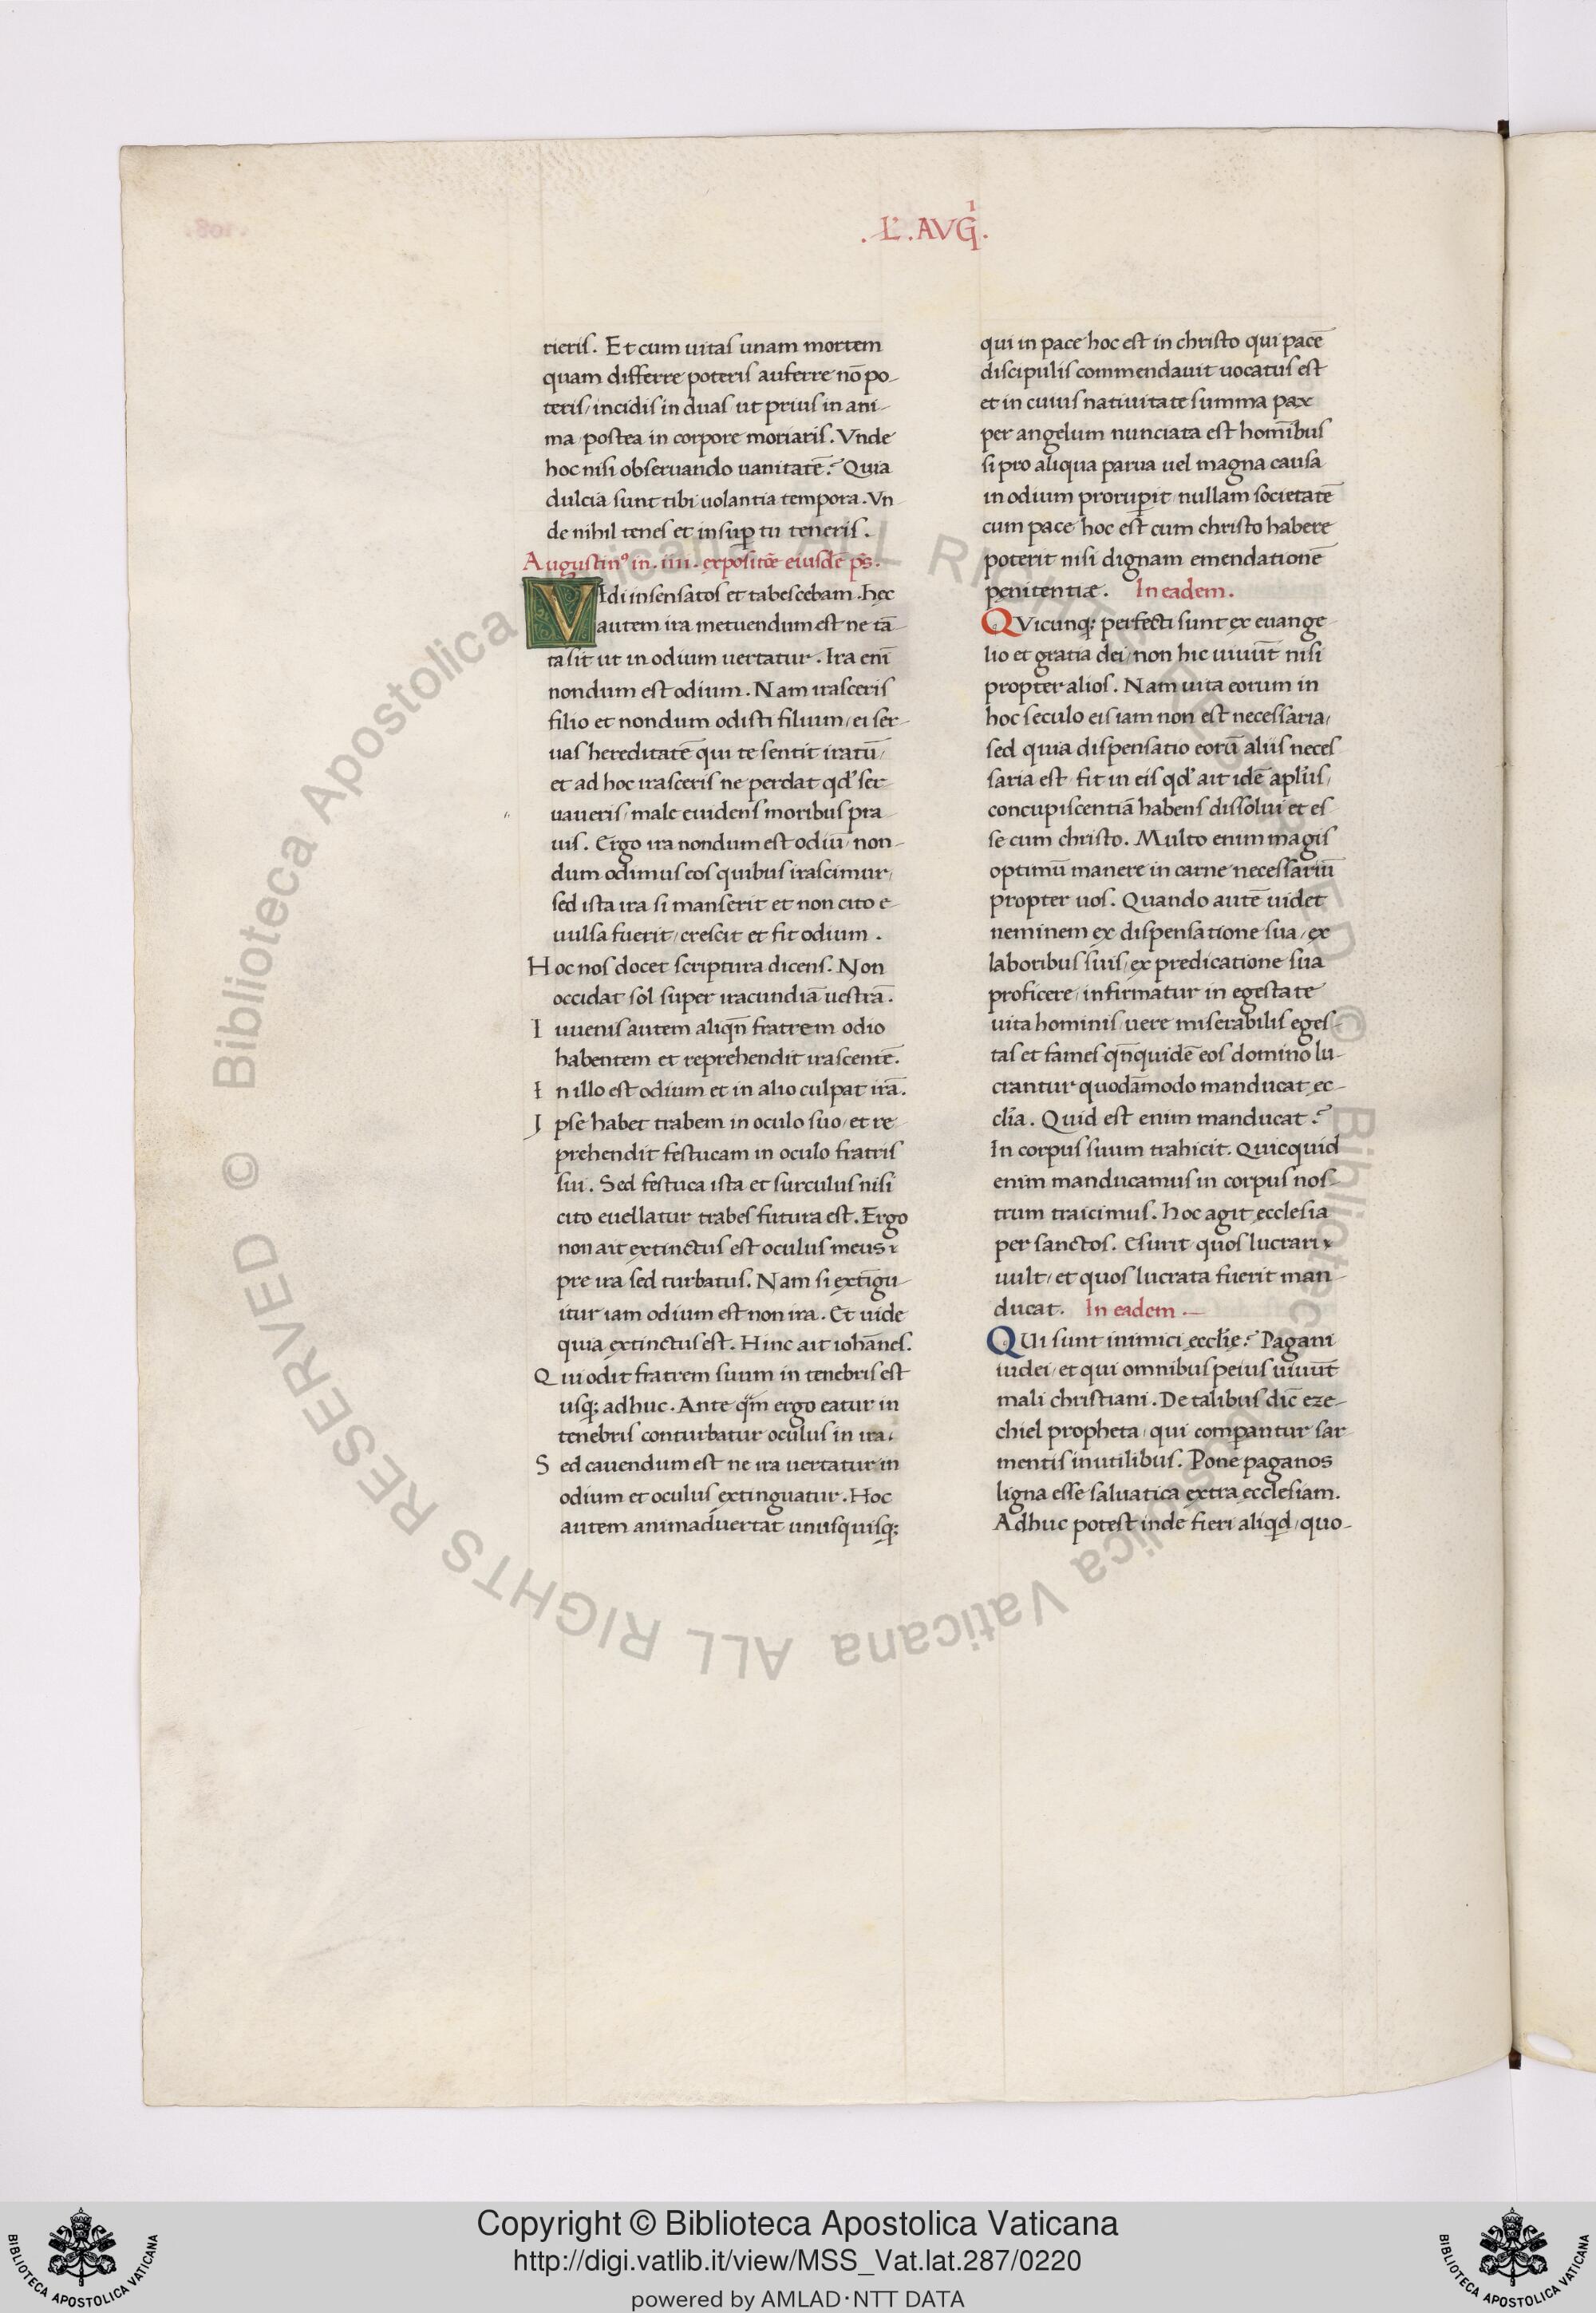 .L̛.AVGⁱ.
rieris. Et cum uitas unam mortem
quam differre poteris auferre nō po-
teris/incidis in duas ut prius in ani-
ma postea in corpore moriaris. Vnde
hoc nisi obseruando uanitatē? Quia
dulcia sunt tibi uolantia tempora. Vn
de nihil tenes et insuꝑ tu teneris.
Augustin⁹ in .iiii. expositōe eiusdē ps̄.
VIdi insensatos et tabescebam. hęc
autem ira metuendum est ne tā-
ta sit ut in odium uertatur. Ira eni̅
nondum est odium. Nam irasceris
filio et nondum odisti filium/ei ser-
uas hereditatē qui te sentit iratū/
et ad hoc irasceris ne perdat qđ ser-
uaueris/male euidens moribus pra-
uis. Ergo ira nondum est odiū/non-
dum odimus eos quibus irascimur/
sed ista ira si manserit et non cito e-
uulsa fuerit/crescit et fit odium.
Hoc nos docet scriptura dicens. Non
occidat sol super iracundiā uestrā.
Iuuenis autem aliqn̄ fratrem odio
habentem et reprehendit irascentē.
In illo est odium et in alio culpat irā.
Ipse habet trabem in oculo suo/et re-
prehendit festucam in oculo fratris
sui. Sed festuca ista et surculus nisi
cito euellatur trabes futura est. Ergo
non ait extinctus est oculus meus
pre ira sed turbatus. Nam si extīgu-
itur iam odium est non ira. Et uide
quia extinctus est. Hinc ait iohānes.
Qui odit fratrem suum in tenebris est
usq; adhuc. Ante q̄m ergo eatur in
tenebris conturbatur oculus in ira.
Sed cauendum est ne ira uertatur in
odium et oculus extinguatur. Hoc
autem animaduertat unusquisq;
qui in pace hoc est in christo qui pacē
discipulis commendauit uocatus est
et in cuius natiuitate summa pax
per angelum nunciata est homībus
si pro aliqua parua uel magna causa
in odium proruꝑit/nullam societatē
cum pace hoc est cum christo habere
poterit nisi dignam emendationē
penitentiæ. In eadem.
QVicunq; perfecti sunt ex euange-
lio et gratia dei/non hic uiuūt nisi
propter alios. Nam uita eorum in
hoc seculo eis iam non est necessaria/
sed quia dispensatio eorū aliis neces
saria est fit in eis qđ ait idē aplūs/
concupiscentiā habens dissolui et es
se cum christo. Multo enim magis
optimū manere in carne necessariū
propter uos. Quando autē uidet
neminem ex dispensatione sua/ex
laboribus suis/ex predicatione sua
proficere/infirmatur in egestate
uita hominis/uere miserabilis eges-
tas et fames qn̄quidē eos domino lu-
crantur quodāmodo manducat ec-
clīa. Quid est enim manducat?
In corpus suum trahicit. Quicquid
enim manducamus in corpus nos-
trum traicimus. Hoc agit ecclesia
per sanctos. Esurit quos lucrari
uult/et quos lucrata fuerit man-
ducat. In eadem.
QUi sunt inimici ecclīe? Pagani
iudei/et qui omnibus peius uiuūt
mali christiani. De talibus dic̄ eze-
chiel propheta/qui comꝑantur sar-
mentis inutilibus. Pone paganos
ligna esse saluatica extra ecclesiam.
Adhuc potest inde fieri aliqd/quo-
© Biblioteca Apostolica Vaticana ALL RIGHTS RESERVED © Biblioteca Apostolica Vaticana ALL RIGHTS RESERVED
Copyright © Biblioteca Apostolica Vaticana
http://digi.vatlib.it/view/MSS_Vat.lat.287/0220
powered by AMLAD·NTT DATA
BIBLIOTECA APOSTOLICA VATICANA
BIBLIOTECA APOSTOLICA VATICANA